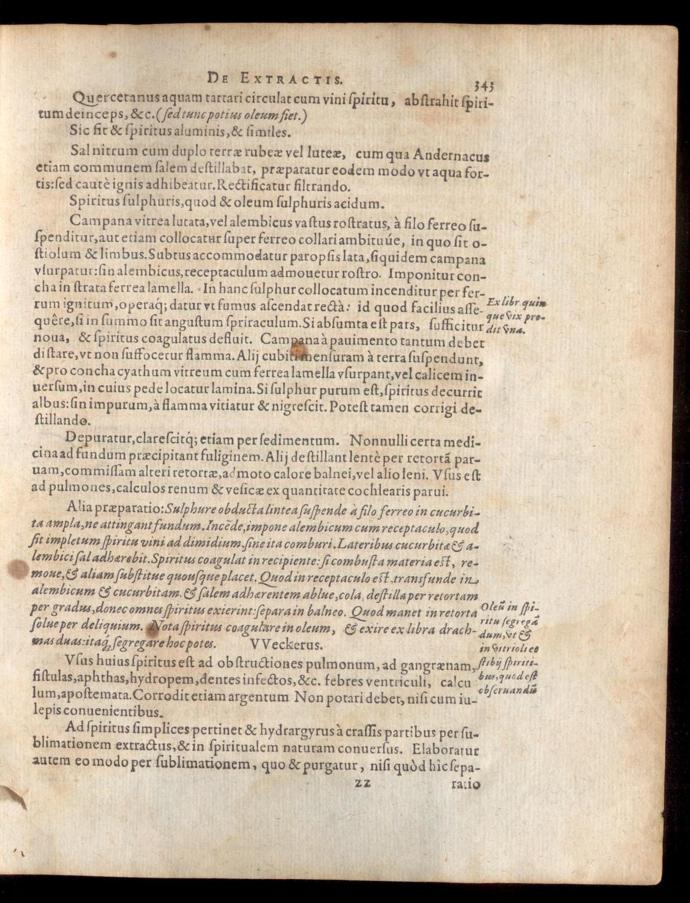 DE EXTRACTIS.
343
Quercetanus aquam tartari circulat cum vini spiritu, abstrahit spiri-
tum deinceps, &c. (sed tunc potius oleum fiet.)
Sic fit & spiritus aluminis, & similes.
Sal nitrum cum duplo terræ rubeæ vel luteæ, cum qua Andernacus
etiam communem salem destillabat, præparatur eodem modo vt aqua for-
tis: sed cautè ignis adhibeatur. Rectificatur filtrando.
Spiritus sulphuris, quod & oleum sulphuris acidum.
Campana vitrea lutata, vel alembicus vastus rostratus, à filo ferreo su-
spenditur, aut etiam collocatur super ferreo collari ambitúue, in quo sit o-
stiolum & limbus. Subtus accommodatur paropsis lata, siquidem campana
vsurpatur: sin alembicus, receptaculum admouetur rostro. Imponitur con-
cha in strata ferrea lamella. In hanc sulphur collocatum incenditur per fer-
rum ignitum, operaq; datur vt fumus ascendat rectà: id quod facilius asse-
quêre, si in summo sit angustum spriraculum. Si absumta est pars, sufficitur
noua, & spiritus coagulatus defluit. Campana à pauimento tantum debet
distare, vt non suffocetur flamma. Alij cubiti mensuram à terra suspendunt,
& pro concha cyathum vitreum cum ferrea lamella vsurpant, vel calicem in-
uersum, in cuius pede locatur lamina. Si sulphur purum est, spiritus decurrit
albus: sin impurum, à flamma vitiatur & nigrescit. Potest tamen corrigi de-
stillando.
Ex libr. quin
que vix pro-
dit vna.
Depuratur, clarescitq; etiam per sedimentum. Nonnulli certa medi-
cina ad fundum præcipitant fuliginem. Alij destillant lentè per retortã par-
uam, commissam alteri retortæ, admoto calore balnei, vel alio leni. Vsus est
ad pulmones, calculos renum & vesicæ ex quantitate cochlearis parui.
Alia præparatio: Sulphure obducta lintea suspende à filo ferreo in cucurbi-
ta ampla, ne attingant fundum. Incẽde, impone alembicum cum receptaculo, quod
sit impletum spiritu vini ad dimidium, sine ita comburi. Lateribus cucurbitæ & a-
lembici sal adhærebit. Spiritus coagulat in recipiente: si combusta materia est, re-
moue, & aliam substitue quousque placet. Quod in receptaculo est, transfunde in
alembicum & cucurbitam, & salem adhærentem ablue, cola, destilla per retortam
per gradus, donec omnes spiritus exierint: separa in balneo. Quod manet in retorta
solue per deliquium. Nota spiritus coagulare in oleum, & exire ex libra drach-
mas duas: itaq; segregare hoc potes. VVeckerus.
Oleũ in spi-
ritu segregã
dum, vt &
in vitrioli et
stibij spiriti-
bus, quod est
obseruandũ
Vsus huius spiritus est ad obstructiones pulmonum, ad gangrænam,
fistulas, aphthas, hydropem, dentes infectos, &c. febres ventriculi, calcu
lum, apostemata. Corrodit etiam argentum Non potari debet, nisi cum iu-
lepis conuenientibus.
Ad spiritus simplices pertinet & hydrargyrus à crassis partibus per su-
blimationem extractus, & in spiritualem naturam conuersus. Elaboratur
autem eo modo per sublimationem, quo & purgatur, nisi quòd hîc sepa-
zz
ratio